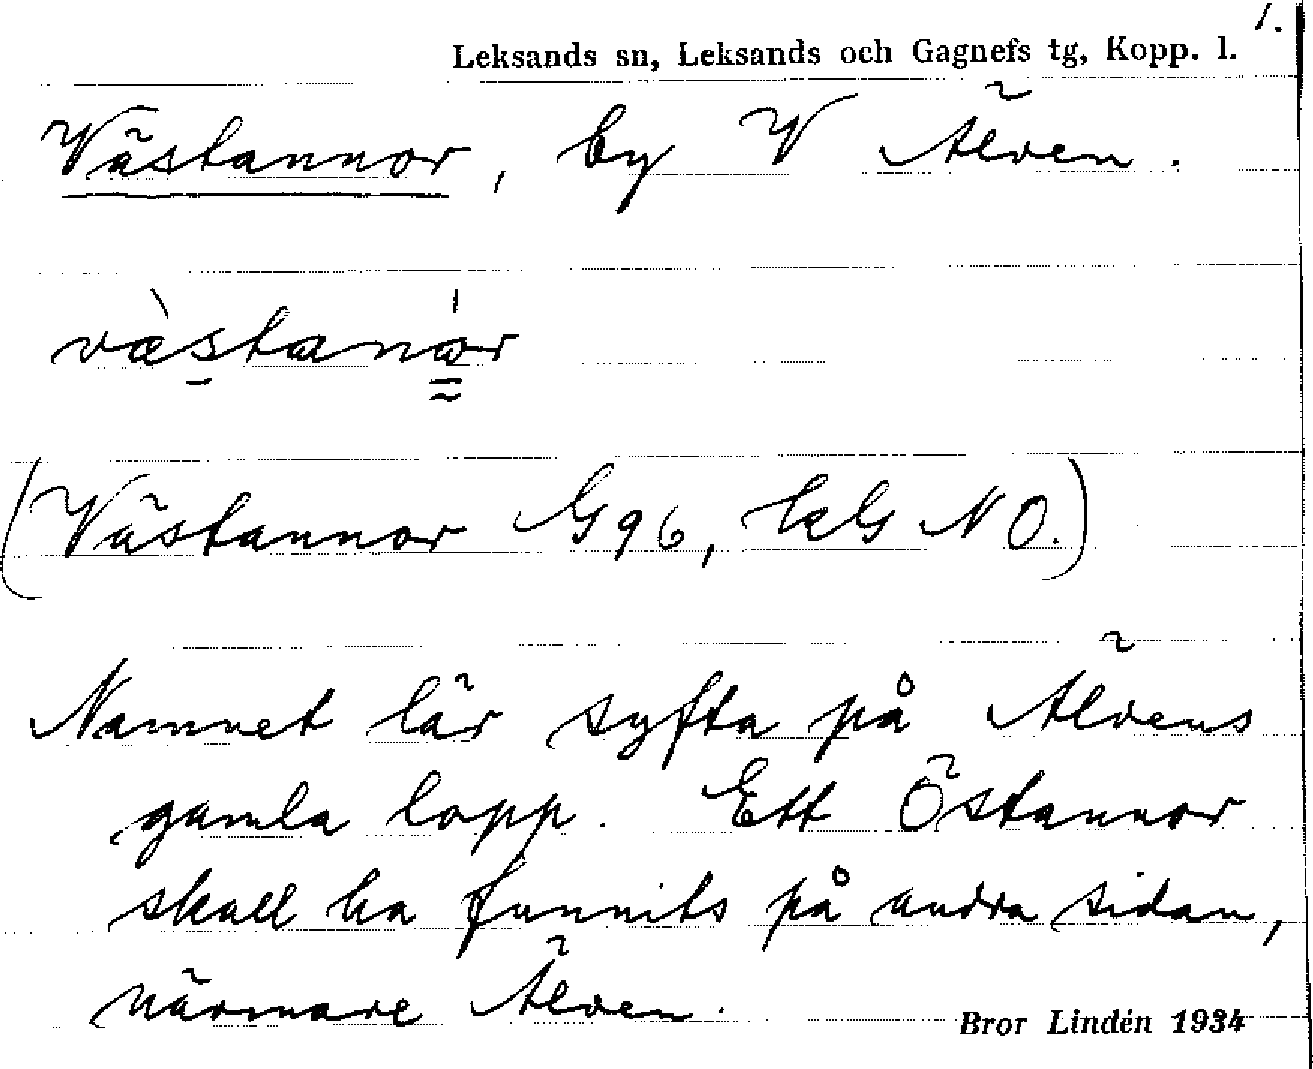 1.
Leksands sn, Leksands och Gagnefs tg, Kopp. l.
Västannor, by V Älven.
vàstanár
(Västannor G96, kkG NO.)
Namnet lär syfta på Älvens
gamla lopp. Ett Östannor
skall ha funnits på andra sidan,
närmare Älven.
Bror Lindén 1934